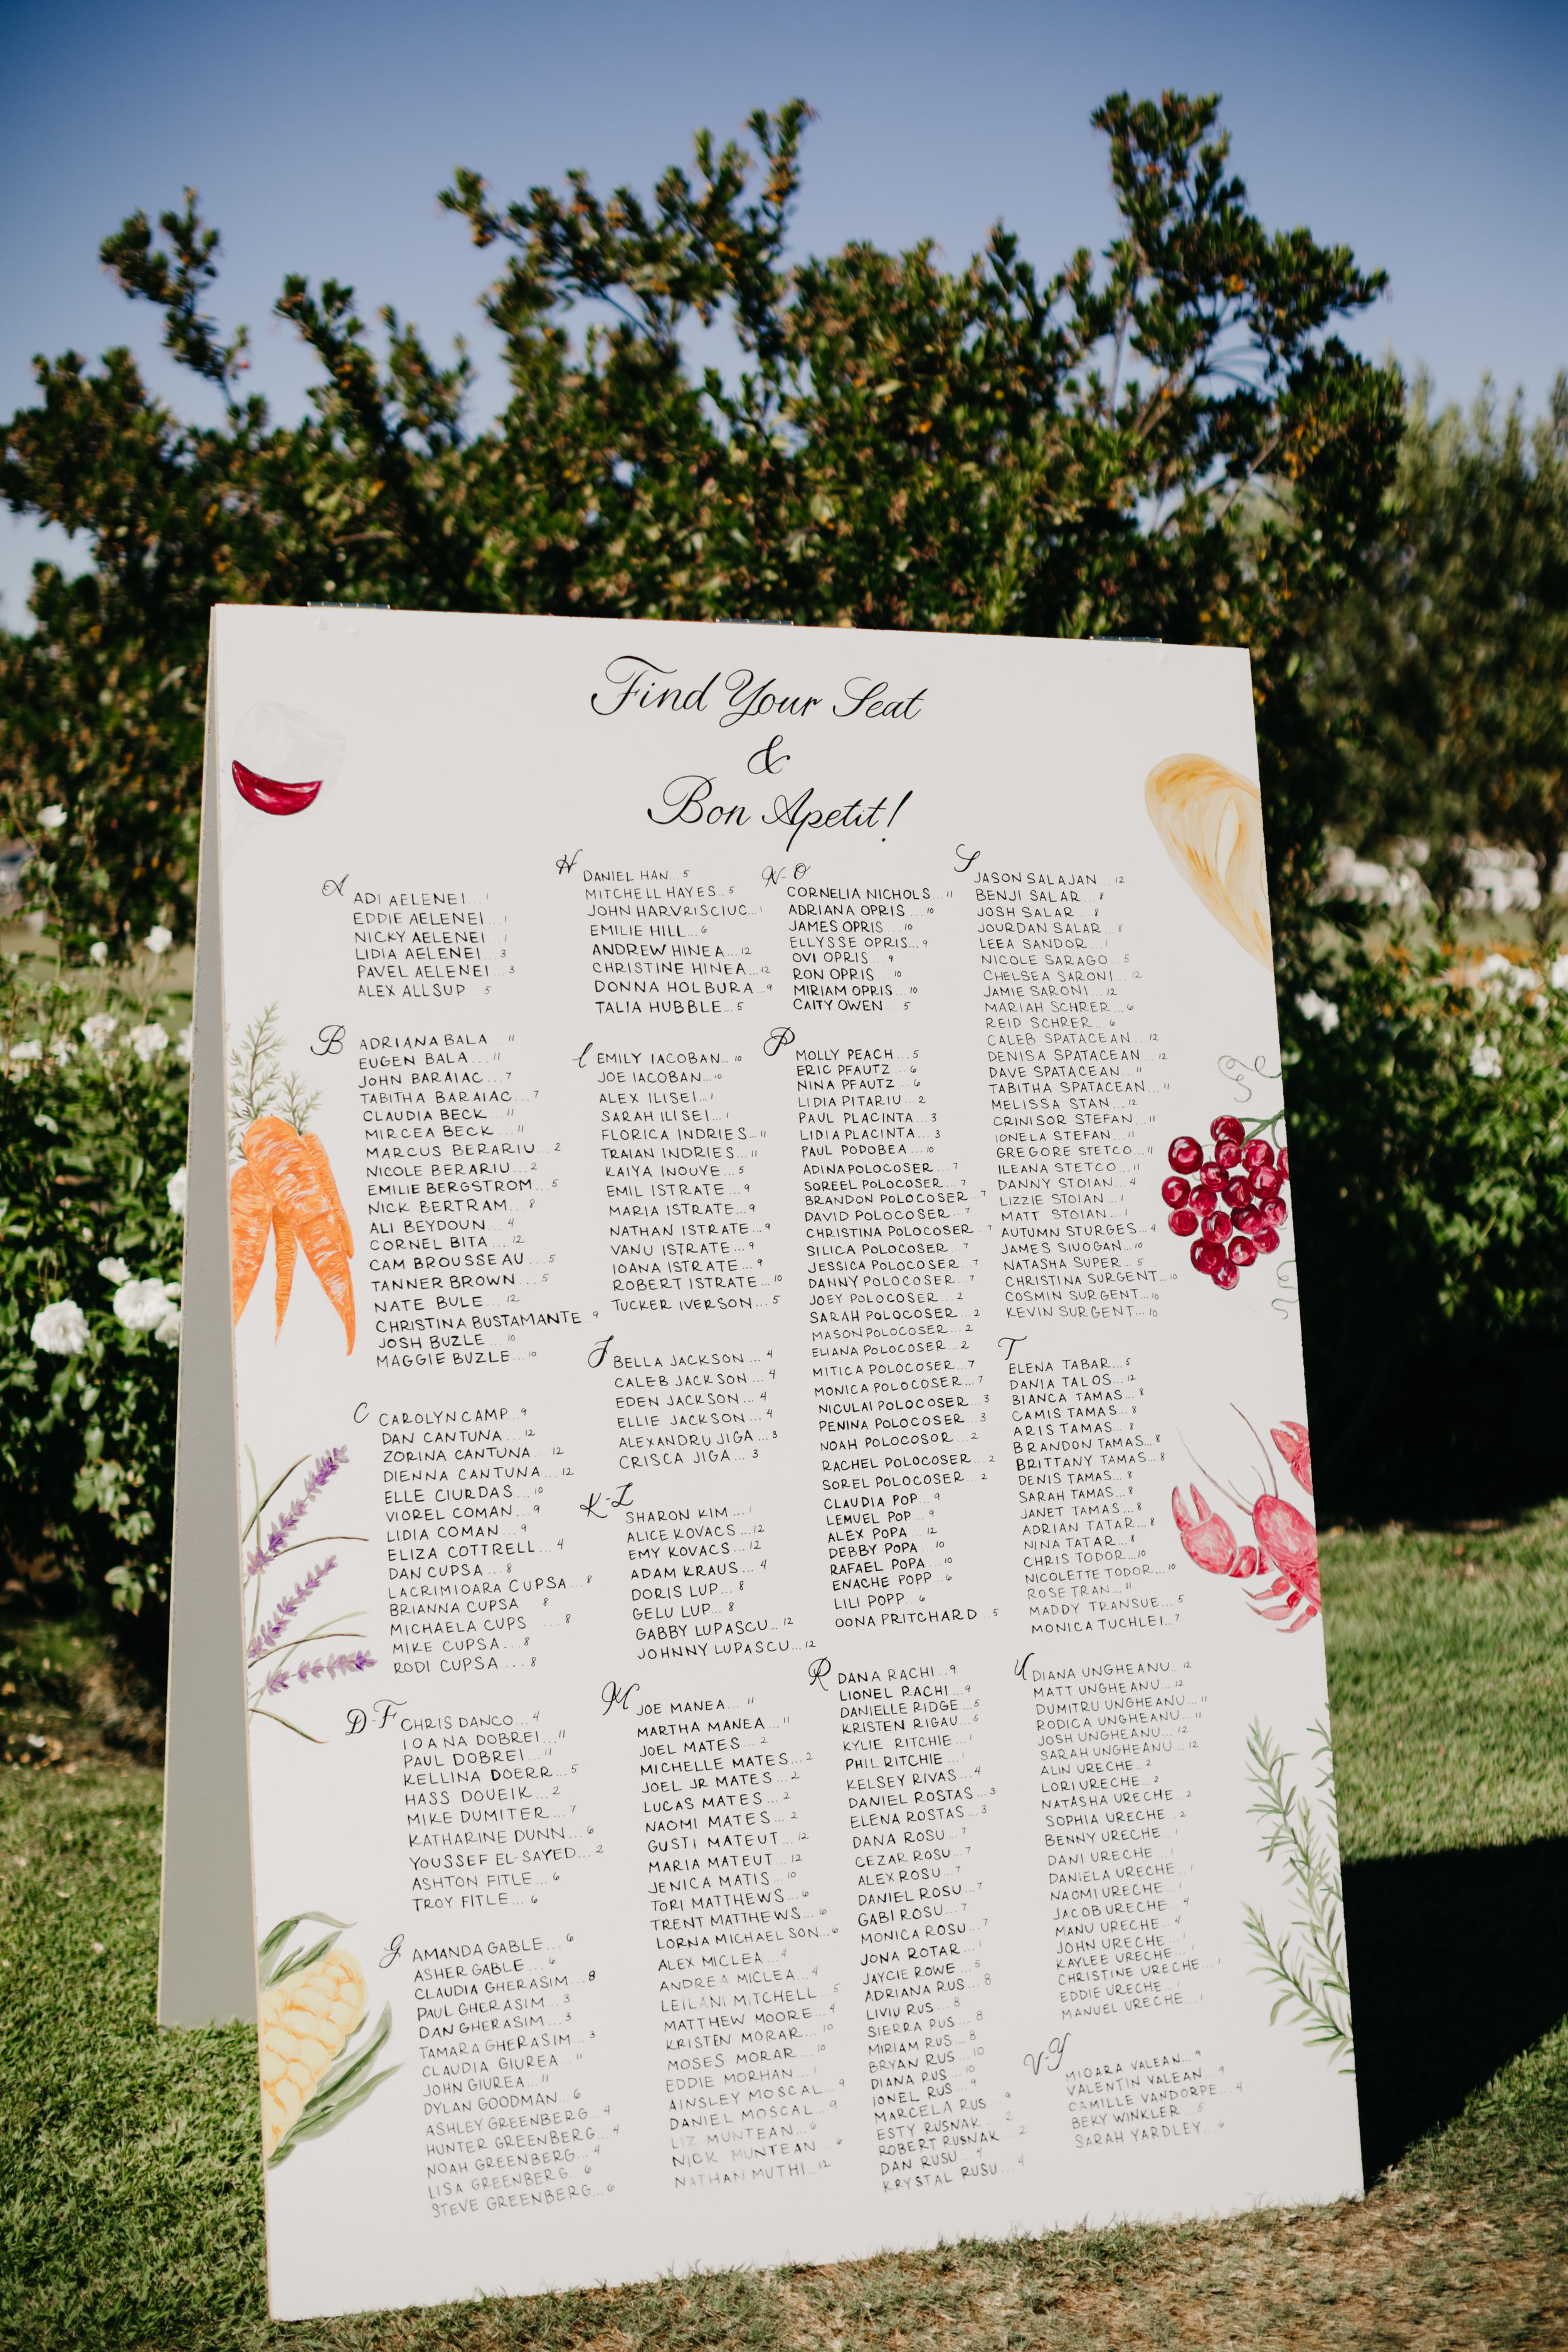 Find Your Seat
&
Bon Apetit!
A
ADI AELENEI...1
EDDIE AELENEI...1
NICKY AELENEI...1
LIDIA AELENEI...3
PAVEL AELENEI...3
ALEX ALLSUP...5
B
ADRIANA BALA...11
EUGEN BALA...11
JOHN BARAIAC...7
TABITHA BARAIAC...7
CLAUDIA BECK...11
MIRCEA BECK...11
MARCUS BERARIU...2
NICOLE BERARIU...2
EMILIE BERGSTROM...5
NICK BERTRAM...8
ALI BEYDOUN...4
CORNEL BITA...12
CAM BROUSSEAU...5
TANNER BROWN...5
NATE BULE...12
CHRISTINA BUSTAMANTE 9
JOSH BUZLE...10
MAGGIE BUZLE...10
C
CAROLYN CAMP...9
DAN CANTUNA...12
ZORINA CANTUNA...12
DIENNA CANTUNA...12
ELLE CIURDAS...10
VIOREL COMAN...9
LIDIA COMAN...9
ELIZA COTTRELL...4
DAN CUPSA...8
LACRIMIOARA CUPSA...8
BRIANNA CUPSA 8
MICHAELA CUPS...8
MIKE CUPSA...8
RODI CUPSA...8
D-F
CHRIS DANCO...4
IOANA DOBREI...11
PAUL DOBREI...11
KELLINA DOERR...5
HASS DOUEIK...2
MIKE DUMITER...7
KATHARINE DUNN...6
YOUSSEF EL-SAYED...2
ASHTON FITLE...6
TROY FITLE...6
G
AMANDA GABLE...6
ASHER GABLE...6
CLAUDIA GHERASIM...8
PAUL GHERASIM...3
DAN GHERASIM...3
TAMARA GHERASIM...3
CLAUDIA GIUREA...11
JOHN GIUREA...11
DYLAN GOODMAN...6
ASHLEY GREENBERG...4
HUNTER GREENBERG...4
NOAH GREENBERG...4
LISA GREENBERG...6
STEVE GREENBERG...6
H
DANIEL HAN...5
MITCHELL HAYES...5
JOHN HARVRISCIUC...1
EMILIE HILL...6
ANDREW HINEA...12
CHRISTINE HINEA...12
DONNA HOLBURA...9
TALIA HUBBLE...5
I
EMILY IACOBAN...10
JOE IACOBAN...10
ALEX ILISEI...1
SARAH ILISEI...1
FLORICA INDRIES...11
TRAIAN INDRIES...11
KAIYA INOUYE...5
EMIL ISTRATE...9
MARIA ISTRATE...9
NATHAN ISTRATE...9
VANU ISTRATE...9
IOANA ISTRATE...9
ROBERT ISTRATE...10
TUCKER IVERSON...5
J
BELLA JACKSON...4
CALEB JACKSON...4
EDEN JACKSON...4
ELLIE JACKSON...4
ALEXANDRU JIGA...3
CRISCA JIGA...3
K-L
SHARON KIM...1
ALICE KOVACS...12
EMY KOVACS...12
ADAM KRAUS...4
DORIS LUP...8
GELU LUP...8
GABBY LUPASCU...12
JOHNNY LUPASCU...12
M
JOE MANEA...11
MARTHA MANEA...11
JOEL MATES...2
MICHELLE MATES...2
JOEL JR MATES...2
LUCAS MATES...2
NAOMI MATES...2
GUSTI MATEUT...12
MARIA MATEUT...12
JENICA MATIS...10
TORI MATTHEWS...6
TRENT MATTHEWS...6
LORNA MICHAELSON...6
ALEX MICLEA...4
ANDREA MICLEA...4
LEILANI MITCHELL...5
MATTHEW MOORE...4
KRISTEN MORAR...10
MOSES MORAR...10
EDDIE MORHAN...1
AINSLEY MOSCAL...9
DANIEL MOSCAL...9
LIZ MUNTEAN...6
NICK MUNTEAN...6
NATHAN MUTHI...12
N-O
CORNELIA NICHOLS...11
ADRIANA OPRIS...10
JAMES OPRIS...10
ELLYSSE OPRIS...9
OVI OPRIS...9
RON OPRIS...10
MIRIAM OPRIS...10
CAITY OWEN...5
P
MOLLY PEACH...5
ERIC PFAUTZ...6
NINA PFAUTZ...6
LIDIA PITARIU...2
PAUL PLACINTA...3
LIDIA PLACINTA...3
PAUL PODOBEA...10
ADINA POLOCOSER...7
SOREEL POLOCOSER...7
BRANDON POLOCOSER...7
DAVID POLOCOSER...7
CHRISTINA POLOCOSER 7
SILICA POLOCOSER...7
JESSICA POLOCOSER...7
DANNY POLOCOSER...7
JOEY POLOCOSER...2
SARAH POLOCOSER...2
MASON POLOCOSER...2
ELIANA POLOCOSER...2
MITICA POLOCOSER...7
MONICA POLOCOSER...7
NICULAI POLOCOSER...3
PENINA POLOCOSER...3
NOAH POLOCOSOR...2
RACHEL POLOCOSER...2
SOREL POLOCOSER...2
CLAUDIA POP...9
LEMUEL POP...9
ALEX POPA...12
DEBBY POPA...10
RAFAEL POPA...10
ENACHE POPP...6
LILI POPP...6
OONA PRITCHARD...5
R
DANA RACHI...9
LIONEL RACHI...9
DANIELLE RIDGE...5
KRISTEN RIGAU...5
KYLIE RITCHIE...1
PHIL RITCHIE...1
KELSEY RIVAS...4
DANIEL ROSTAS...3
ELENA ROSTAS...3
DANA ROSU...7
CEZAR ROSU...7
ALEX ROSU...7
DANIEL ROSU...7
GABI ROSU...7
MONICA ROSU...7
JONA ROTAR...1
JAYCIE ROWE...5
ADRIANA RUS...8
LIVIU RUS...8
SIERRA RUS...8
MIRIAM RUS...8
BRYAN RUS...10
DIANA RUS...10
IONEL RUS...9
MARCELA RUS...9
ESTY RUSNAK...2
ROBERT RUSNAK...2
DAN RUSU...4
KRYSTAL RUSU...4
S
JASON SALAJAN...12
BENJI SALAR...8
JOSH SALAR...8
JOURDAN SALAR...8
LEEA SANDOR...1
NICOLE SARAGO...5
CHELSEA SARONI...12
JAMIE SARONI...12
MARIAH SCHRER...6
REID SCHRER...6
CALEB SPATACEAN...12
DENISA SPATACEAN...12
DAVE SPATACEAN...11
TABITHA SPATACEAN...11
MELISSA STAN...12
CRINISOR STEFAN...11
IONELA STEFAN...11
GREGORE STETCO...11
ILEANA STETCO...11
DANNY STOIAN...4
LIZZIE STOIAN...1
MATT STOIAN...1
AUTUMN STURGES...4
JAMES SIUOGAN...10
NATASHA SUPER...5
CHRISTINA SURGENT...10
COSMIN SURGENT...10
KEVIN SURGENT...10
T
ELENA TABAR...5
DANIA TALOS...12
BIANCA TAMAS...8
CAMIS TAMAS...8
ARIS TAMAS...8
BRANDON TAMAS...8
BRITTANY TAMAS...8
DENIS TAMAS...8
SARAH TAMAS...8
JANET TAMAS...8
ADRIAN TATAR...8
NINA TATAR...8
CHRIS TODOR...10
NICOLETTE TODOR...10
ROSE TRAN...11
MADDY TRANSUE...5
MONICA TUCHLEI...7
U
DIANA UNGHEANU...12
MATT UNGHEANU...12
DUMITRU UNGHEANU...11
RODICA UNGHEANU...11
JOSH UNGHEANU...12
SARAH UNGHEANU...12
ALIN URECHE...2
LORI URECHE...2
NATASHA URECHE...2
SOPHIA URECHE...2
BENNY URECHE...1
DANI URECHE...1
DANIELA URECHE...1
NAOMI URECHE...1
JACOB URECHE...4
MANU URECHE...4
JOHN URECHE...1
KAYLEE URECHE...1
CHRISTINE URECHE...1
EDDIE URECHE...1
MANUEL URECHE...1
V-Y
MIOARA VALEAN...9
VALENTIN VALEAN...9
CAMILLE VANDORPE...4
BEKY WINKLER...5
SARAH YARDLEY...6